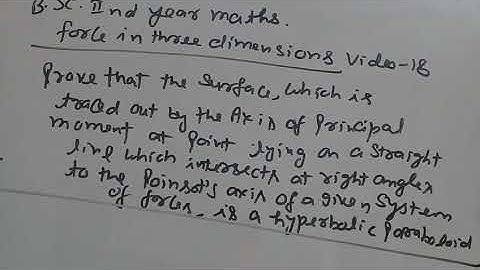 B.SC. IInd year maths.
force in three dimensions Video-18
Prove that the surface, which is
traced out by the Axis of Principal
moment at Point lying on a straight
line which intersects at right angles
to the Poinsot's axis of a given System
of forces, is a hyperbolic Paraboloid